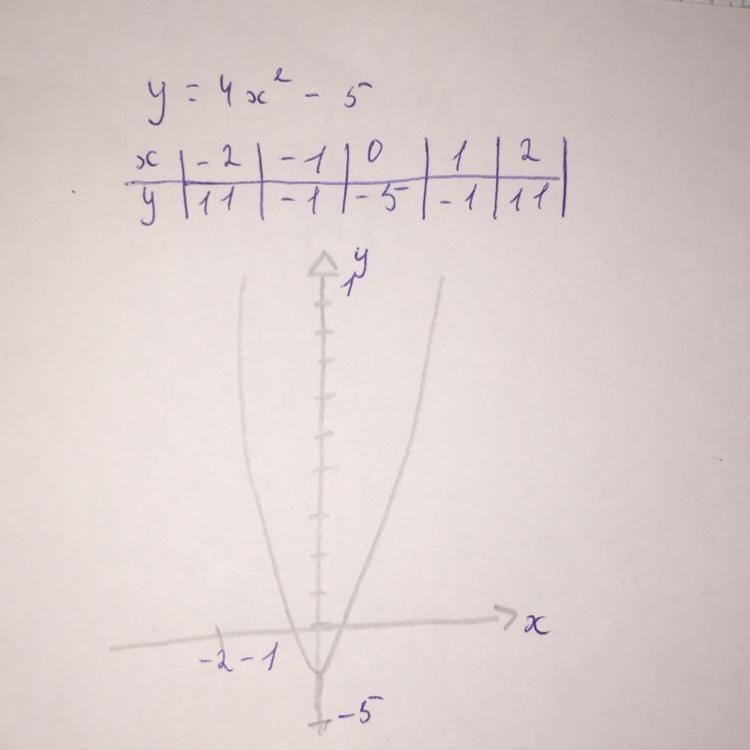 y = 4x² - 5
x | -2 | -1 | 0 | 1 | 2 |
y | 11 | -1 | -5 | -1 | 11 |
y
1
x
-2 -1
-5